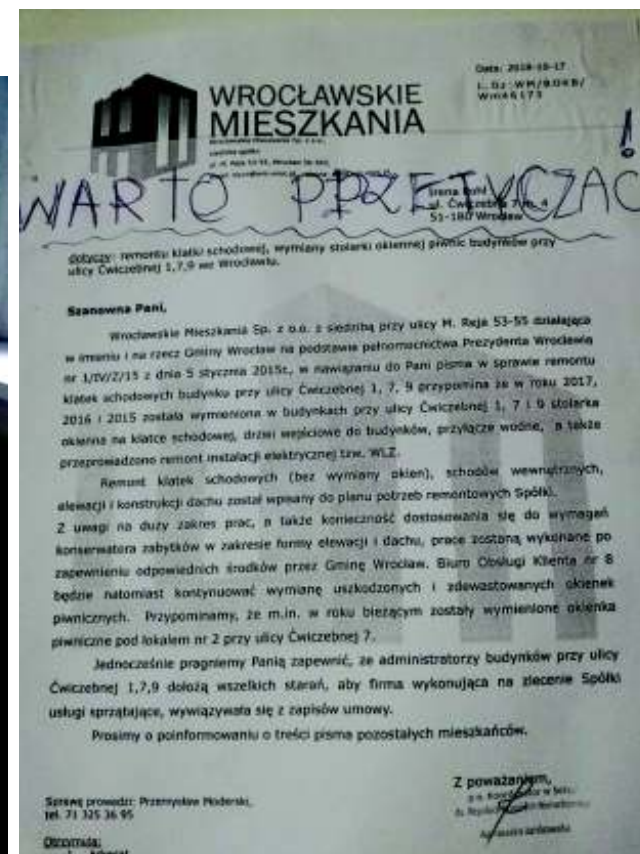 Data: 2018-10-17
WROCŁAWSKIE
MIESZKANIA
WARTO PRZECZYTAĆ!
Irena
ul. Ćwiczebna 7 m. 4
51-180 Wrocław
dotyczy: remontu klatki schodowej, wymiany stolarki okiennej piwnic budynków przy
ulicy Ćwiczebnej 1,7,9 we Wrocławiu.
Szanowna Pani,
Wrocławskie Mieszkania Sp. z o.o. z siedzibą przy ulicy M. Reja 53-55 działająca
w imieniu i na rzecz Gminy Wrocław na podstawie pełnomocnictwa Prezydenta Wrocławia
nr 1/IV/Z/15 z dnia 5 stycznia 2015r., w nawiązaniu do Pani pisma w sprawie remontu
klatek schodowych budynku przy ulicy Ćwiczebnej 1, 7, 9 przypomina że w roku 2017,
2016 i 2015 została wymieniona w budynkach przy ulicy Ćwiczebnej 1, 7 i 9 stolarka
okienna na klatce schodowej, drzwi wejściowe do budynków, przyłącze wodne, a także
przeprowadzono remont instalacji elektrycznej tzw. WLZ.
Remont klatek schodowych (bez wymiany okien), schodów wewnętrznych,
elewacji i konstrukcji dachu został wpisany do planu potrzeb remontowych Spółki.
Z uwagi na duży zakres prac, a także konieczność dostosowania się do wymagań
konserwatora zabytków w zakresie formy elewacji i dachu, prace zostaną wykonane po
zapewnieniu odpowiednich środków przez Gminę Wrocław. Biuro Obsługi Klienta nr 8
będzie natomiast kontynuować wymianę uszkodzonych i zdewastowanych okienek
piwnicznych. Przypominamy, że m.in. w roku bieżącym zostały wymienione okienka
piwniczne pod lokalem nr 2 przy ulicy Ćwiczebnej 7.
Jednocześnie pragniemy Panią zapewnić, że administratorzy budynków przy ulicy
Ćwiczebnej 1,7,9 dołożą wszelkich starań, aby firma wykonująca na zlecenie Spółki
usługi sprzątające, wywiązywała się z zapisów umowy.
Prosimy o poinformowaniu o treści pisma pozostałych mieszkańców.
Z poważaniem,
Sprawę prowadzi: Przemysław Moderski,
tel. 71 325 36 95
Otrzymują: